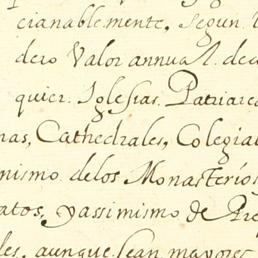 cianablemente, segun
dero Valor annual. de
quier. Iglesias. Patriarc
nas, Cathedrales, Colegia
nismo delos Monasterios
atos, yassimismo de Pre
les, aunque sean mayores